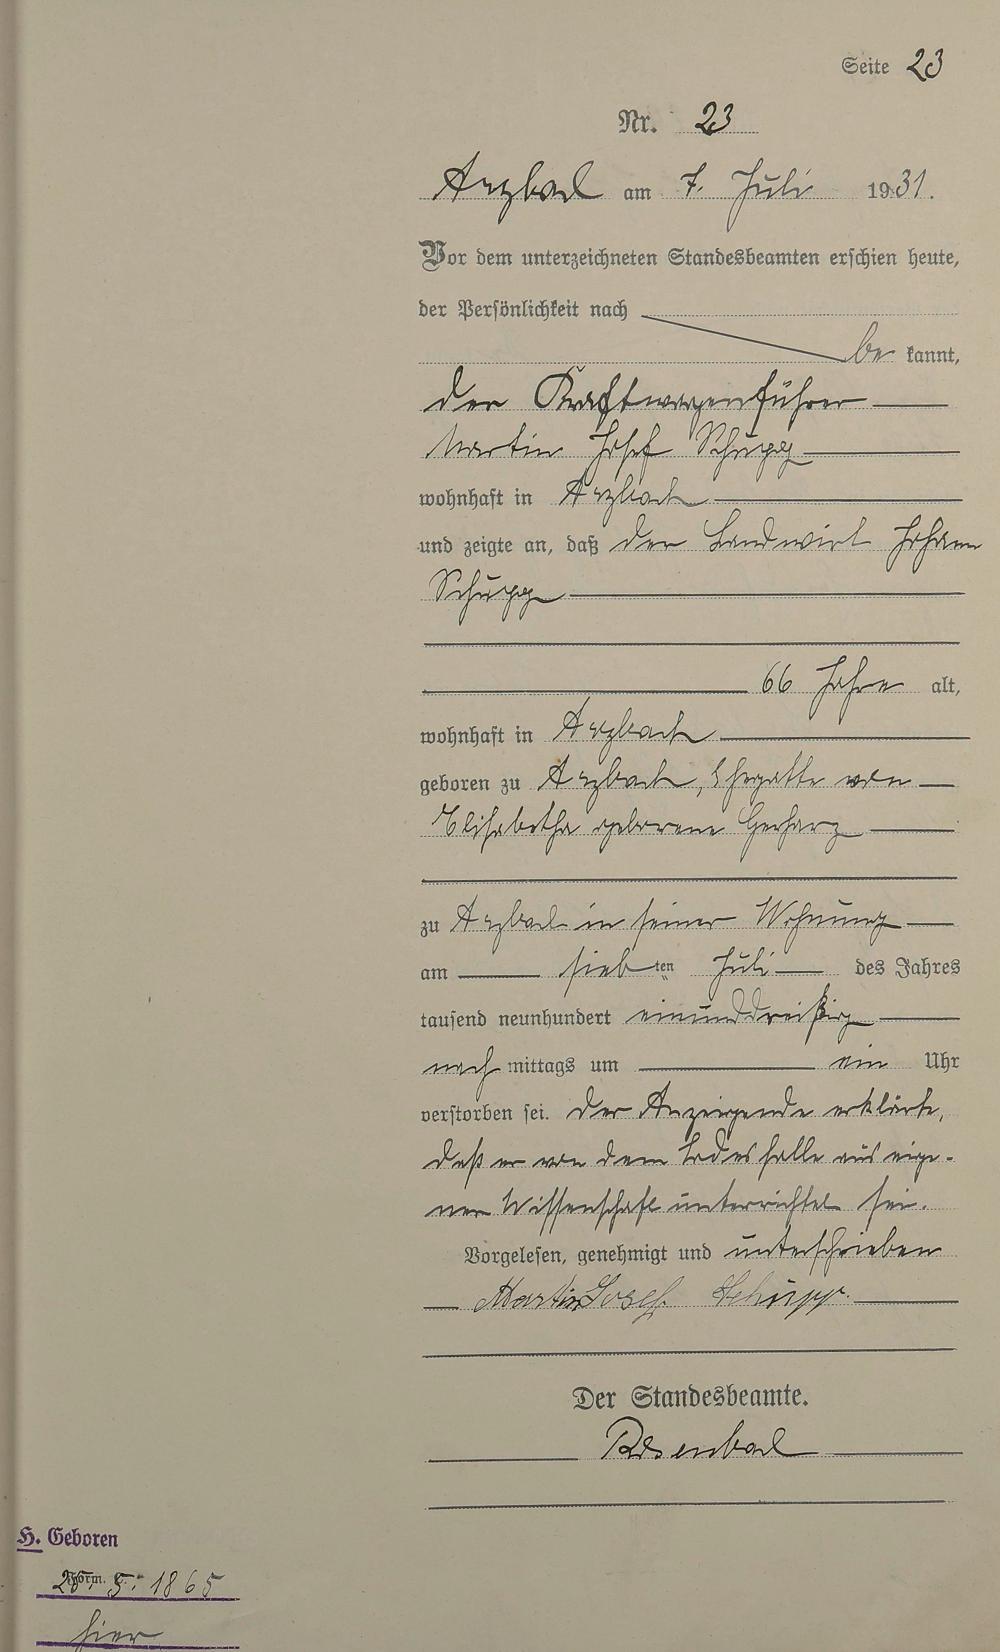 Seite 23
Nr. 23
Arzbach am 7. Juli 1931.
Vor dem unterzeichneten Standesbeamten erschien heute,
der Persönlichkeit nach
be kannt,
der Kraftwagenführer
Martin Josef Schupp
wohnhaft in Arzbach
und zeigte an, daß der Landwirt Johann
Schupp
66 Jahre alt,
wohnhaft in Arzbach
geboren zu Arzbach, Ehegatte von
Elisabetha geborene Gerharz
zu Arzbach in seiner Wohnung
am siebten Juli des Jahres
tausend neunhundert einunddreißig
nach mittags um ein Uhr
verstorben sei. Der Anzeigende erklärte,
daß er von dem Todesfalle aus eige-
ner Wissenschaft unterrichtet sei.
Vorgelesen, genehmigt und unterschrieben
Martin Josef Schupp.
Der Standesbeamte.
H. Geboren
5. 1865
hier